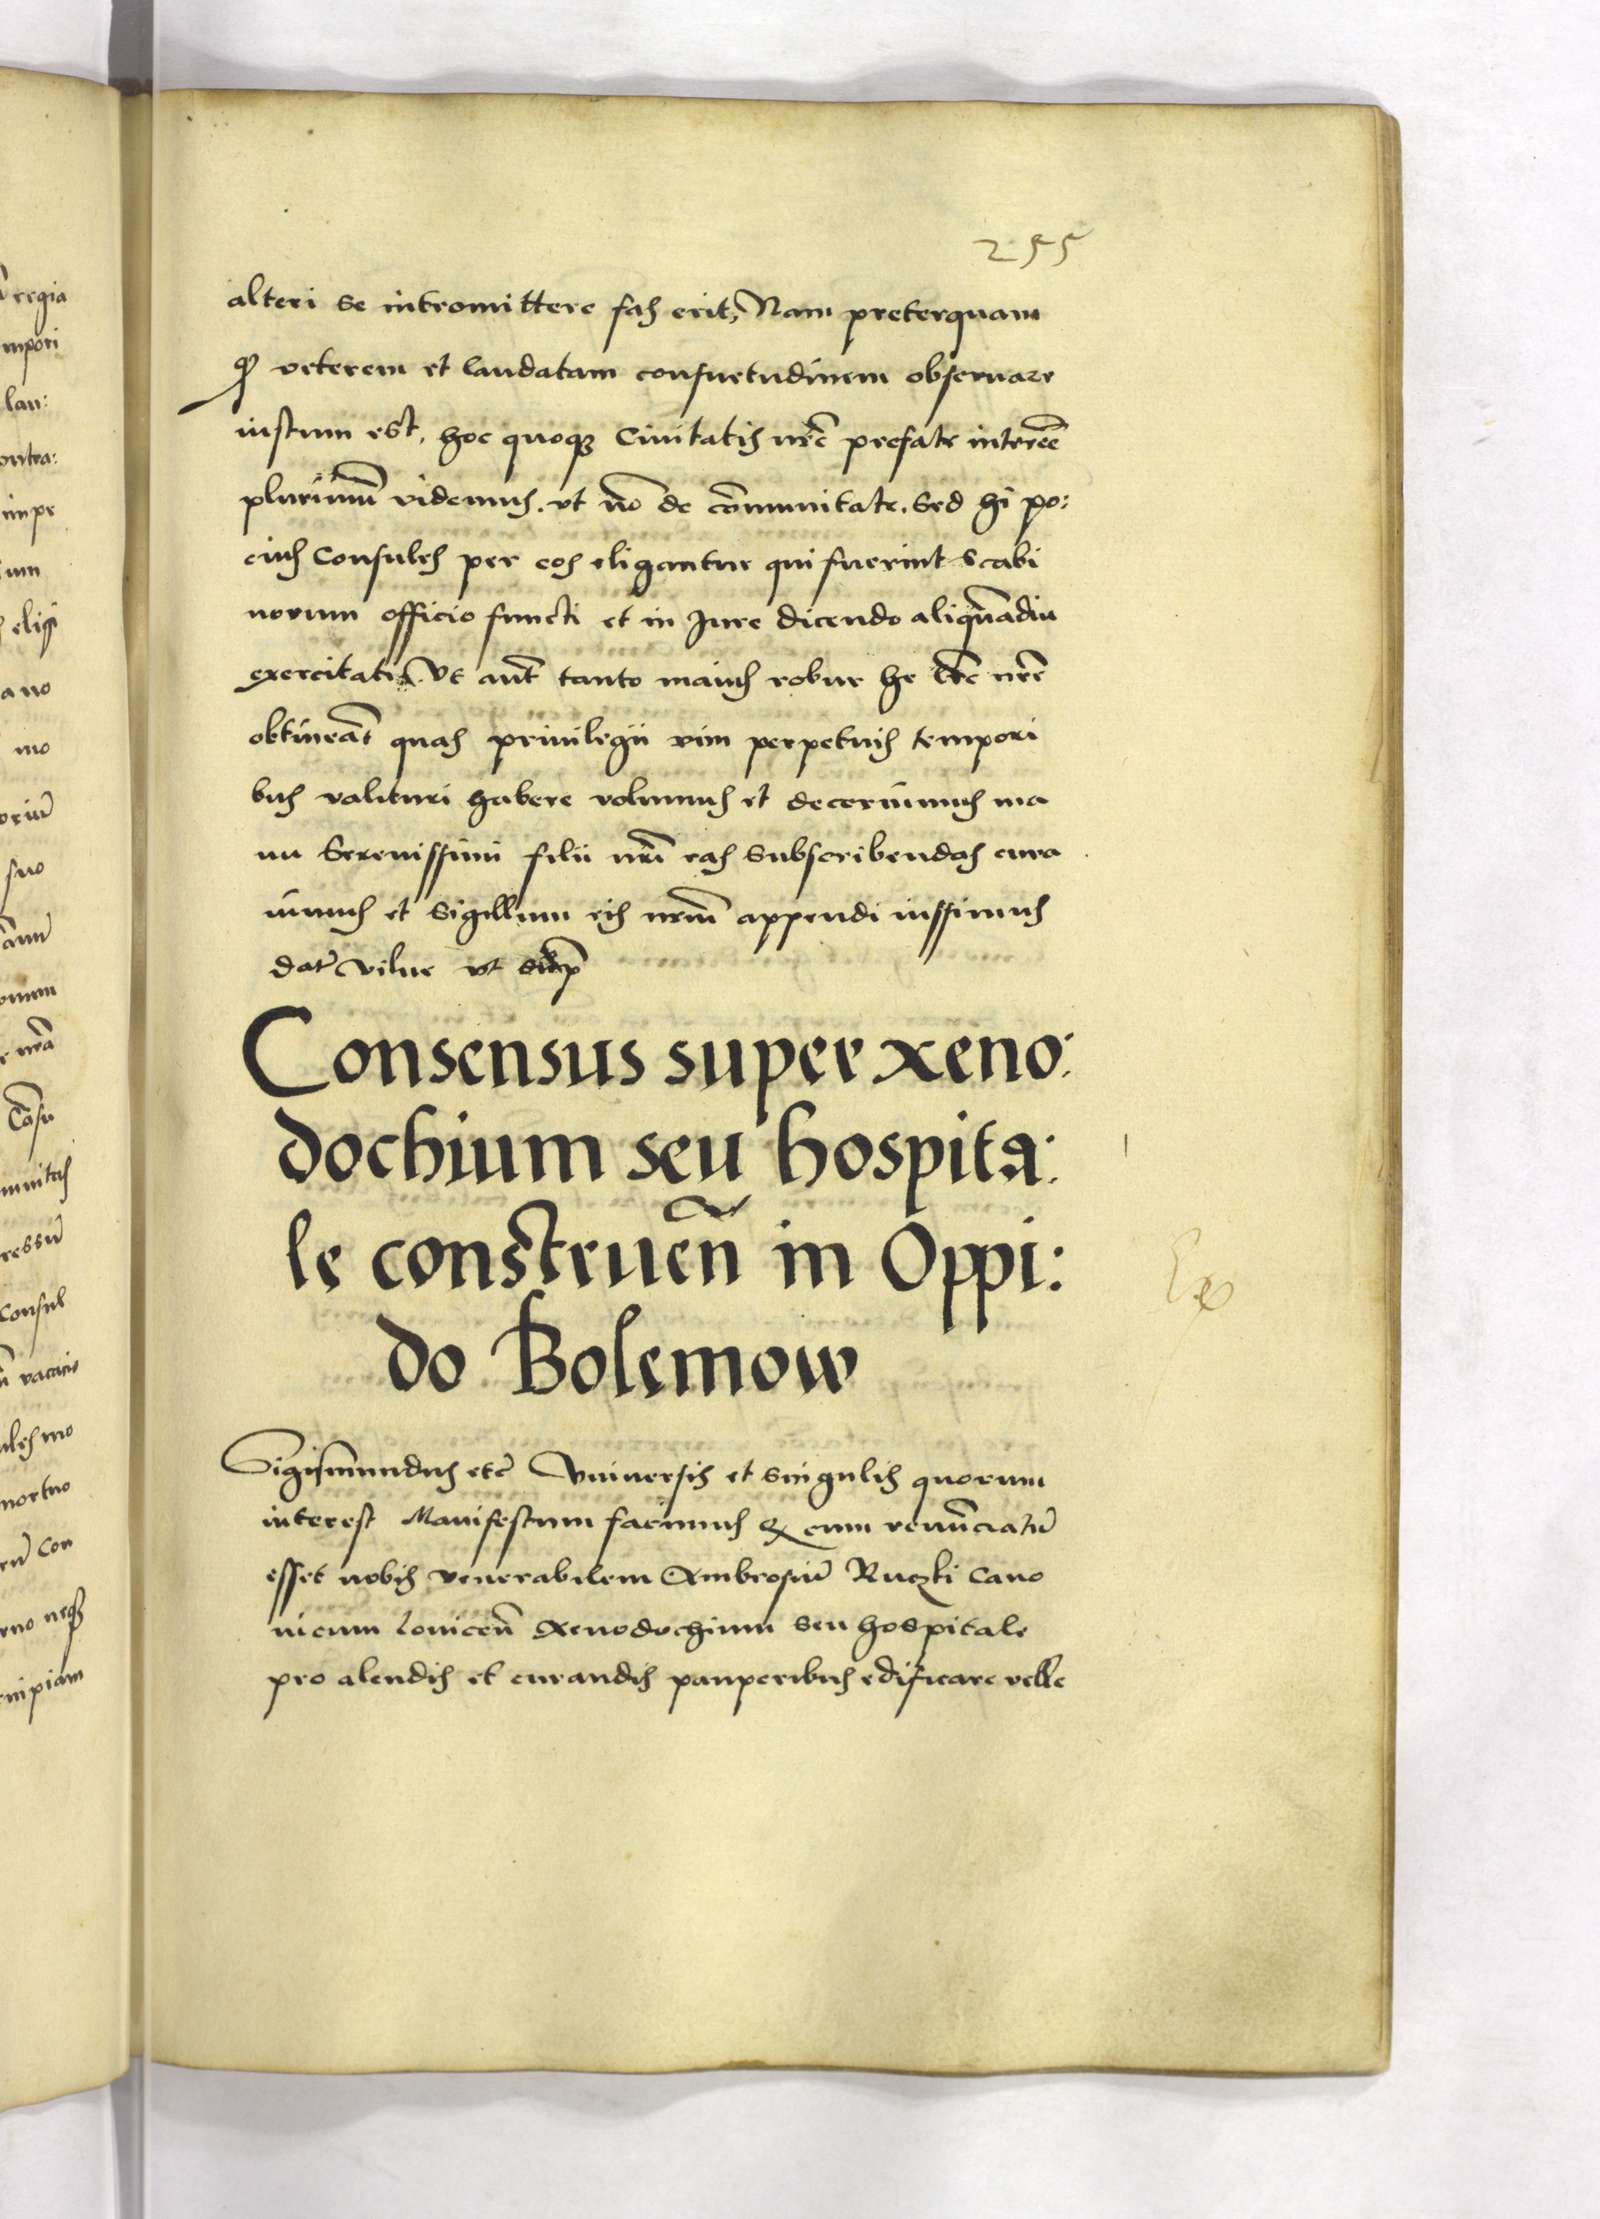 255
alteri se intromittere fas erit, Nam preterquam
qd veterem et laudatam consuetudinem obseruare
iustum est, hoc quoqz Ciuitatis nrē prefate intereē
plurimū videmus. vt nō de cōmunitate. Sed hi po:
cius Consules per eos eligantur qui fuerint Scabi
norum officio functi et in Jure dicendo aliqūadiu
exercitati. Vt aut̄ tanto maius robur he lrē nrē
obtineāt quas priuilegii vim perpetuis tempori
bus valituri habere volumus et decernimus ma
nu Serenissimi filii nrī eas Subscribendas cura
uimus et Sigillum eis nrm̄ appendi iussimus
dat̄ Vilne vt sup̄
Consensus super xeno:
dochium seu hospita:
le construen̄ in Oppi:
do Bolemow
Sigismundus etc̄ Vniuersis et singulis quorum
interest Manifestum facimus qz cum renūciatū
esset nobis venerabilem Ambrosiū Ruczki Cano
nicum louicen̄ Xenodochium seu hospitale
pro alendis et curandis pauperibus edificare velle
regia
mpori
lau:
ontra:
impe
um
eligi
ano
mo
oriū
suo
omum
nrā
Cōsu
munitas
ressū
Consul
vacacio
ules mo
mortuo
rū Con
rno neqz
cuipiam